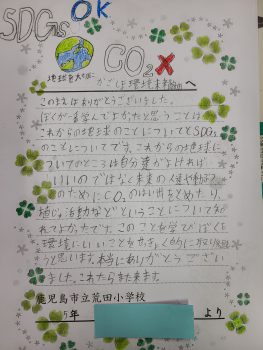 SDGs OK
CO₂ X
地球を大切に
かごしま環境未来館へ
このまえはありがとうございました。
ぼくが一番学んでよかったと思うことは
これからの地球のことについてとSDGs
のことについてです。これからの地球に
ついてのところは自分達がよければ
いいのではなく未来の人達や動物
のためにCO₂のはい出をとめたり、
植じゅ活動などということについて知
れてよかったです。このことを学びぼくも
環境にいいことをせっきょく的に取り組も
うと思います。本当にありがとうござい
ました。これからも来ます。
鹿児島市立荒田小学校
5年
より